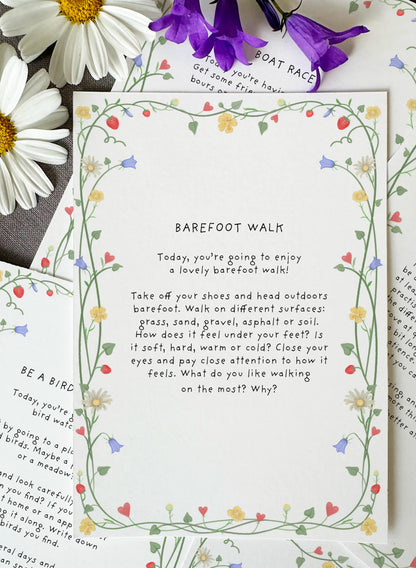 BOAT RACE
Today, you're havin
Get some frien
bours or
BAREFOOT WALK
Today, you're going to enjoy
a lovely barefoot walk!
Take off your shoes and head outdoors
barefoot. Walk on different surfaces:
grass, sand, gravel, asphalt or soil.
How does it feel under your feet? Is
it soft, hard, warm or cold? Close your
eyes and pay close attention to how it
feels. What do you like walking
on the most? Why?
BE A BIRD
Today, you're g
bird watc
by going to a pl
d birds. Maybe a
or a meadow?
and look carefully
n you find? If you
t home or an app
g it along. Write down
birds you find.
eral days and